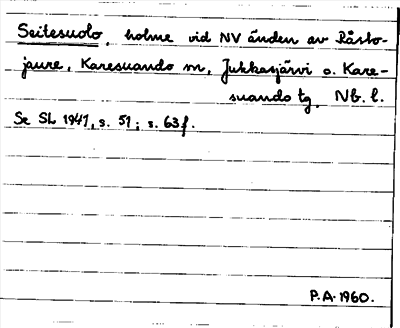 Seitesuolo, holme vid NV änden av Råsto-
jaure, Karesuando sn, Jukkasjärvi o. Kare-
suando tg. Nb. l.
Se SL 1941, s. 51; s. 63f.
P.A. 1960.